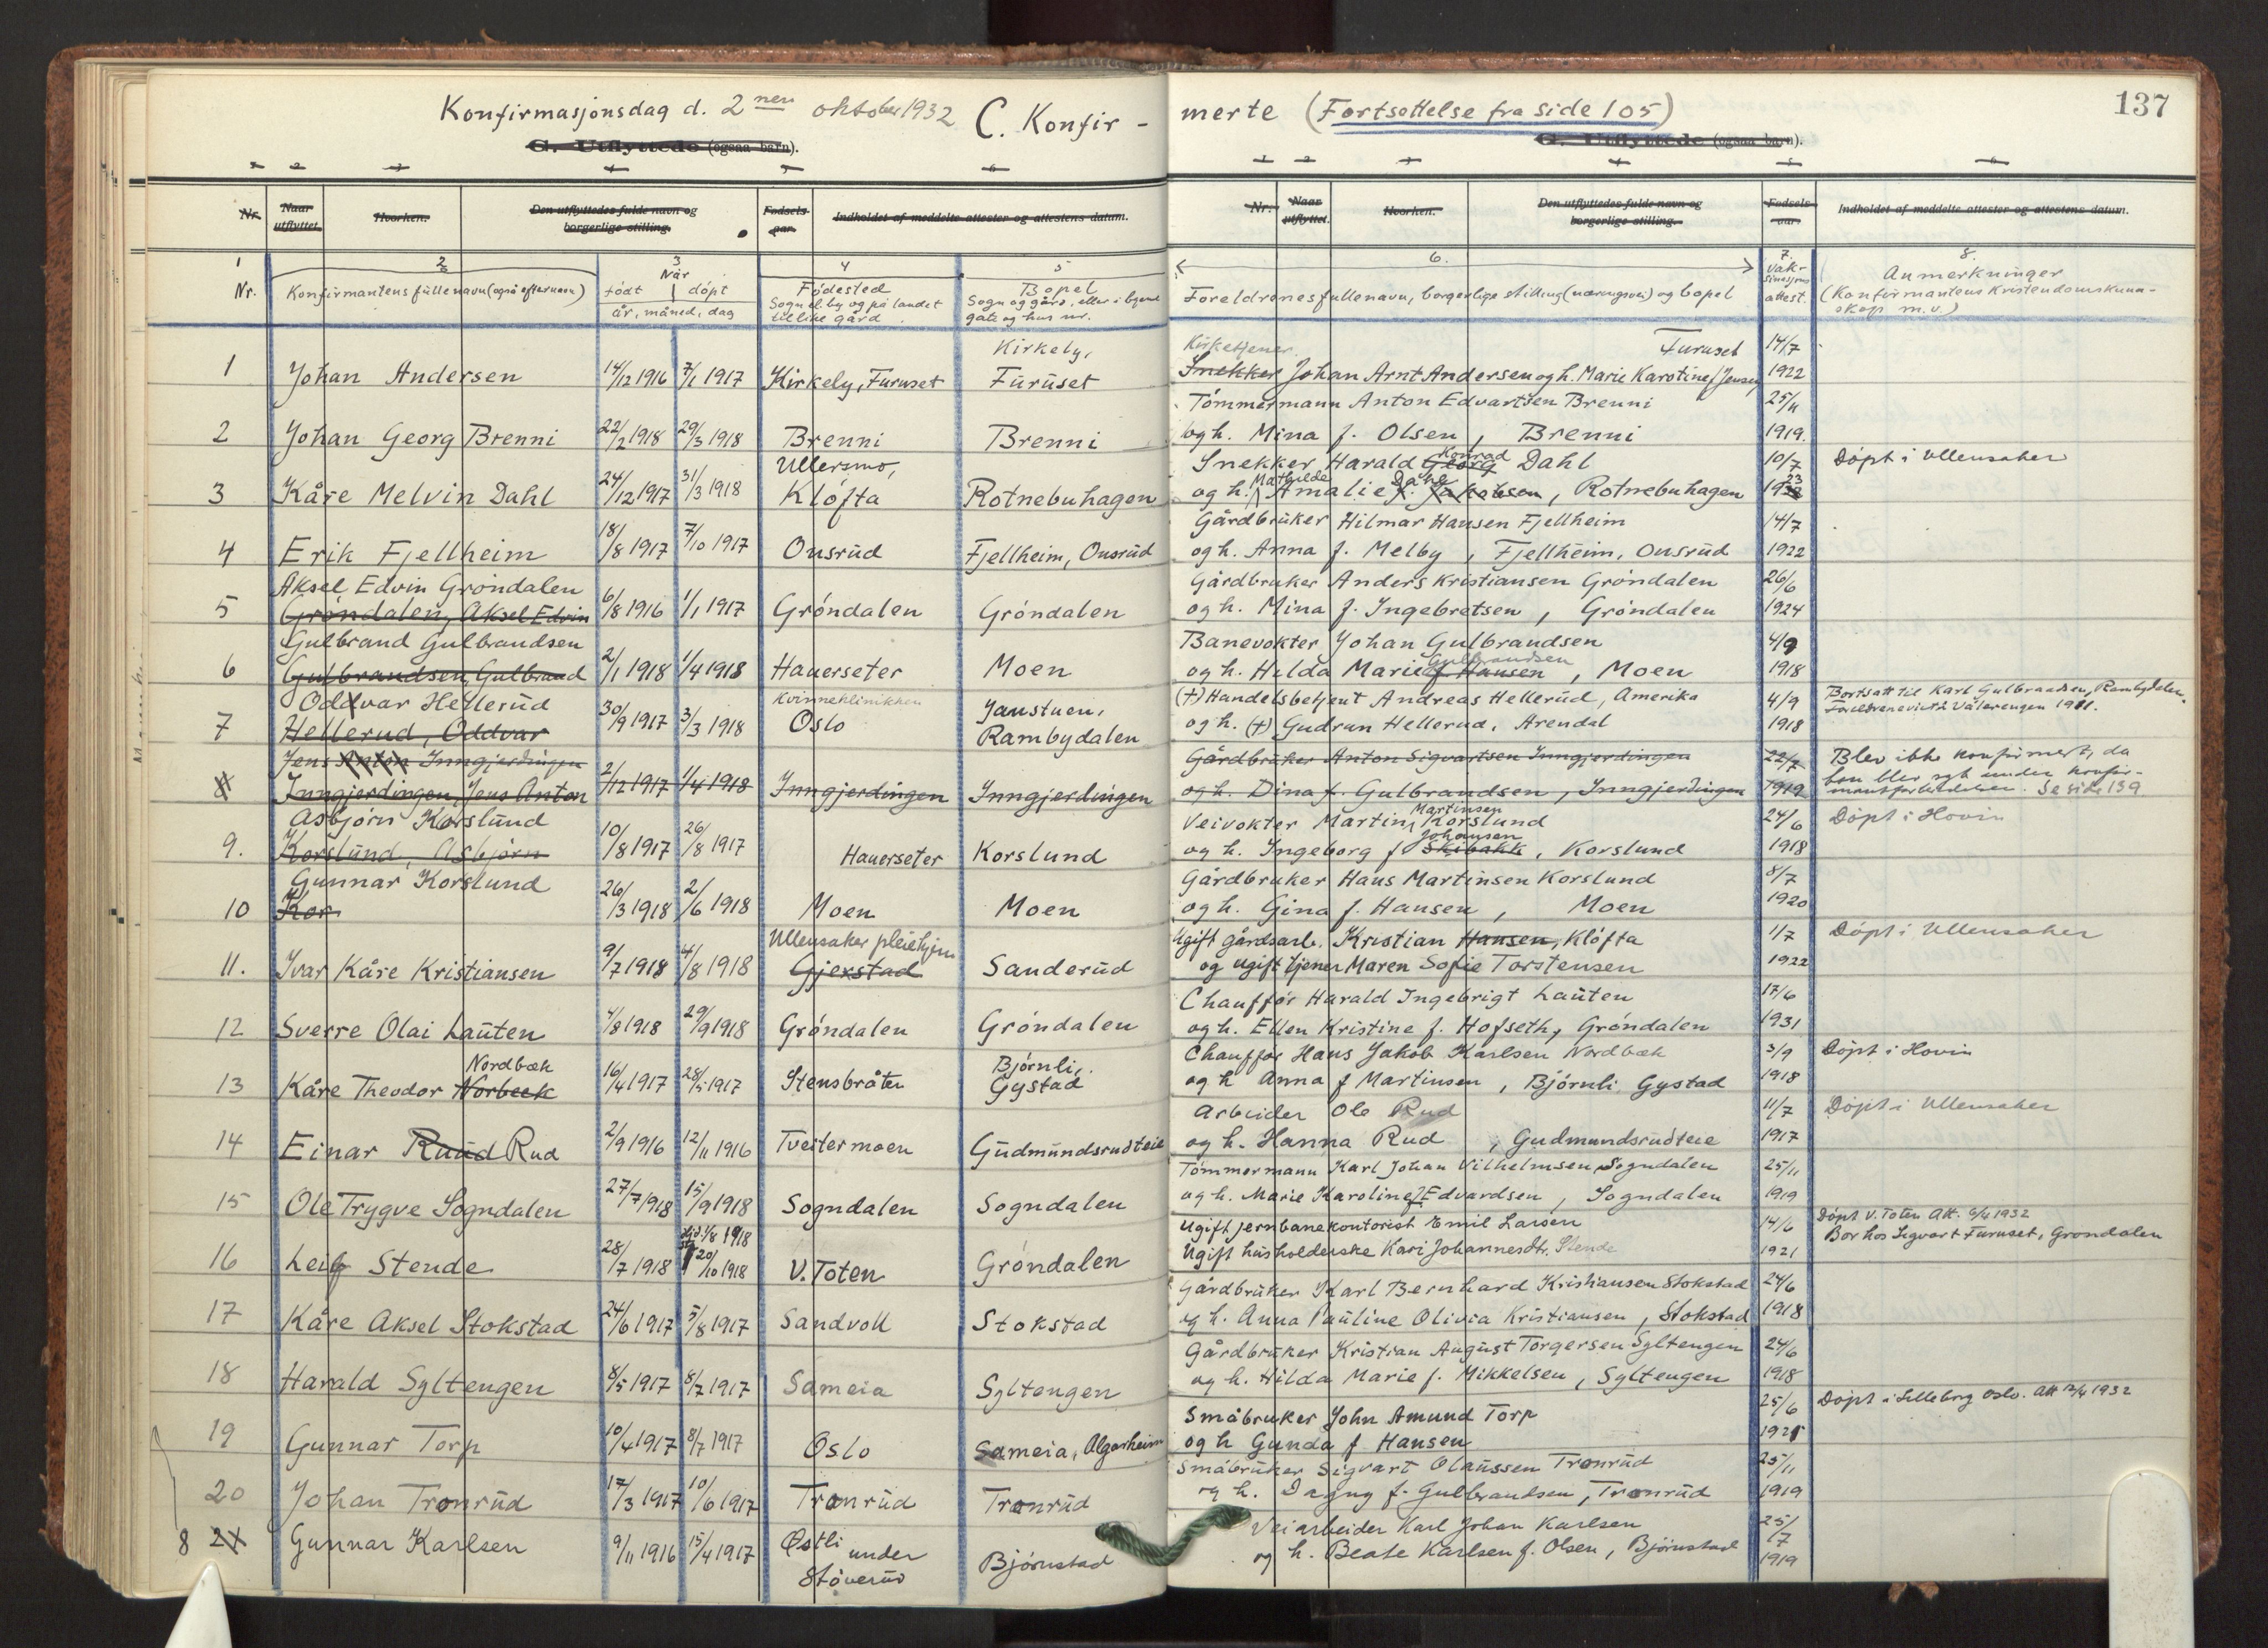 Konfirmasjonsdag d. 2nen oktober 1932 C. Konfir-
merte (Fortsettelse fra side 105)
137
G. Utflyttede (ogsaa barn).
G. Utflyttede (ogsaa barn).
1 2 3 4 5 6
1 2 3 4 5 6
Nr. Naar utflyttet. Hvorhen. Den utflyttedes fulde navn og borgerlige stilling. Fødsels-aar. Indholdet af meddelte attester og attestens datum.
Nr. Naar utflyttet. Hvorhen. Den utflyttedes fulde navn og borgerlige stilling. Fødsels-aar. Indholdet af meddelte attester og attestens datum.
1 2 3 4 5 6. 7. 8.
Nr. Konfirmantens fulle navn (også efternavn)
Når
født døpt
år, måned, dag
Fødested
Sogn el. by og på landet
tillike gård
Bopel
Sogn og gård, eller i byene
gate og hus nr.
Foreldrenes fulle navn, borgerlige stilling (næringsvei) og bopel
Vak-
sinasjons
attest.
Anmerkninger
(Konfirmantens Kristendomskunn-
skap m.v.)
Kirkeby,
Kirketjener Furuset 14/7
1 Johan Andersen 14/12 1916 7/1 1917 Kirkeby, Furuset Furuset
Snekker Johan Arnt Andersen og h. Marie Karotine f. Jensen 1922
Tömmermann Anton Edvartsen Brenni 25/11
2 Johan Georg Brenni 22/2 1918 29/3 1918 Brenni Brenni
og h. Mina f. Olsen, Brenni 1919.
Ullersmo,
Konrad
Snekker Harald Georg Dahl 10/7 Döpt i Ullensaker
3 Kåre Melvin Dahl 24/12 1917 31/3 1918 Klöfta Rotnebuhagen
Mathilde Dahl
og h. Amalie f. Jakobsen, Rotnebuhagen 1923
Gårdbruker Hilmar Hansen Fjellheim 14/7
4 Erik Fjellheim 18/8 1917 7/10 1917 Onsrud Fjellheim, Onsrud
og h. Anna f. Melby, Fjellheim, Onsrud 1922
Aksel Edvin Gröndalen
Gårdbruker Anders Kristiansen Gröndalen 26/6
5 Gröndalen, Aksel Edvin 6/8 1916 1/1 1917 Gröndalen Gröndalen
og h. Mina f. Ingebretsen, Gröndalen 1924
Gulbrand Gulbrandsen
Banevokter Johan Gulbrandsen 4/9
6 Gulbrandsen, Gulbrand 2/1 1918 1/4 1918 Hauerseter Moen
Gulbrandsen
og h. Hilda Marie f. Hansen, Moen 1918
Oddvar Hellerud
Kvinneklinikken Jaustuen,
(†) Handelsbetjent Andreas Hellerud, Amerika 4/9 Bortsatt til Karl Gulbrandsen, Rambydalen.
7 Hellerud, Oddvar 30/9 1917 3/3 1918 Oslo Rambydalen
og h. (†) Gudrun Hellerud, Arendal 1918 Foreldrene viet i Vålerengen 1911.
Jens Anton Inngjerdingen
Gårdbruker Anton Sigvartsen Inngjerdingen 22/7 Blev ikke konfirmert, da
8 Inngjerdingen, Jens Anton 2/12 1917 1/4 1918 Inngjerdingen Inngjerdingen
og h. Dina f. Gulbrandsen, Inngjerdingen 1919 han blev syk under konfir-
mantforberedelsen. Se side 139
Asbjörn Korslund
Martinsen
Veivokter Martin Korslund 24/6 Döpt i Hovin
9. Korslund, Asbjörn 10/8 1917 26/8 1917 Hauerseter Korslund
Johansen
og h. Ingeborg f Skibakk, Korslund 1918
Gunnar Korslund
Gårdbruker Hans Martinsen Korslund 8/7
10 Kor 26/3 1918 2/6 1918 Moen Moen
og h. Gina f. Hansen, Moen 1920
Ullensaker pleiehjem
Ugift gårdsarb. Kristian Hansen, Klöfta 1/7 Döpt i Ullensaker
11. Ivar Kåre Kristiansen 9/7 1918 4/8 1918 Gjerstad Sanderud
og ugift tjener Maren Sofie Torstensen 1922
Chauffór Harald Ingebrigt Lauten 17/6
12 Sverre Olai Lauten 4/8 1918 29/9 1918 Gröndalen Gröndalen
og h. Ellen Kristine f. Hofseth, Gröndalen 1931
Nordbæk
Björnli,
Chauffór Hans Jakob Karlsen Nordbæk 3/9 Döpt i Hovin
13 Kåre Theodor Norbeck 16/4 1917 28/5 1917 Stensbråten Gystad
og h Anna f Martinsen, Björnli, Gystad 1918
Arbeider Ole Rud 11/7 Döpt i Ullensaker
14 Einar Ruud Rud 2/9 1916 12/11 1916 Tveitermoen Gudmundsrudteie
og h. Hanna Rud, Gudmundsrudteie 1917
Tömmermann Karl Johan Vilhelmsen Sogndalen 25/11
15 Ole Trygve Sogndalen 27/7 1918 15/9 1918 Sogndalen Sogndalen
og h. Marie Karoline f Edvardsen, Sogndalen 1919
1/8 1918
Ugift jernbanekontorist Emil Larsen 14/6 Döpt V. Toten Att. 9/4 1932
16 Leif Stende 28/7 1918 20/10 1918 V. Toten Gröndalen
Ugift husholderske Kari Johannesdtr. Stende 1921 Bor hos Sigvart Furuset, Gröndalen
Gårdbruker Karl Bernhard Kristiansen Stokstad 24/6
17 Kåre Aksel Stokstad 24/6 1917 5/8 1917 Sandvoll Stokstad
og h. Anna Pauline Olivia Kristiansen, Stokstad 1918
Gårdbruker Kristian August Torgersen Syltengen 24/6
18 Harald Syltengen 8/5 1917 8/7 1917 Sameia Syltengen
og h. Hilda Marie f. Mikkelsen, Syltengen 1918
Småbruker John Amund Torp 25/6 Döpt i Lilleborg Oslo. Att 12/4 1932
19 Gunnar Torp 10/4 1917 8/7 1917 Oslo Sameia, Algarheim
og h Gunda f. Hansen 1921
Småbruker Sigvart Olaussen Tronrud 25/11
20 Johan Tronrud 17/3 1917 10/6 1917 Tronrud Tronrud
og h. Dagny f. Gulbrandsen, Tronrud 1919
Veiarbeider Karl Johan Karlsen 25/7
8 21 Gunnar Karlsen 9/11 1916 15/4 1917 Østli under Stöverud Björnstad
og h. Beate Karlsen f. Olsen, Björnstad 1919